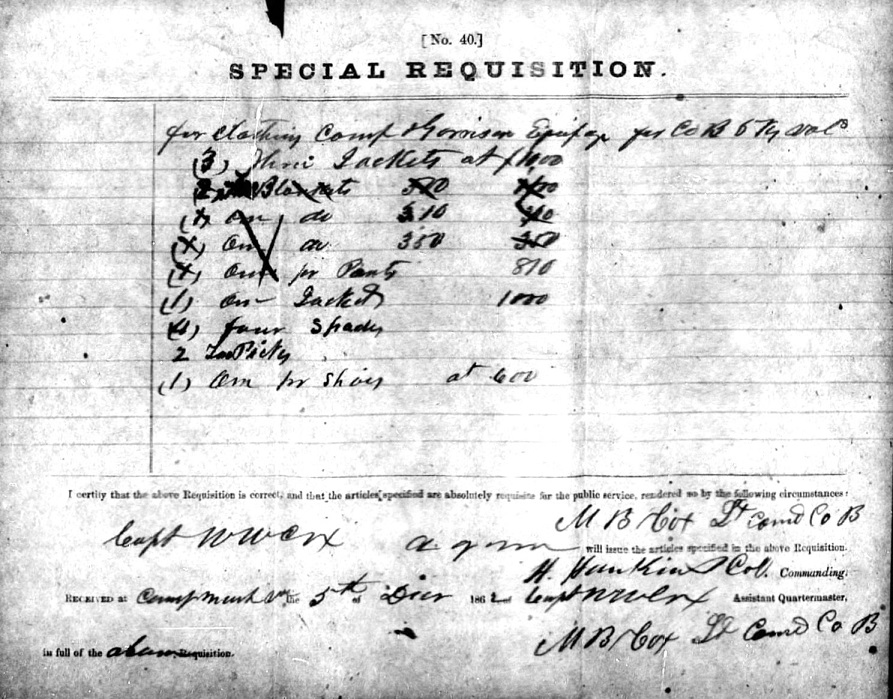 [No. 40.]
SPECIAL REQUISITION.
for Clothing Camp & Garrison Equipage for Co B 6 Ky Vols
(3) Three Jackets at $10 00
Blankets
(1) One do 3 10
(1) One do 3 50 3 50
(1) One pr Pants 8 10
(1) One Jacket 10 00
(4) four Spades
2 Two Picks
(1) One pr Shoes at 6 00
I certify that the above Requisition is correct, and that the articles specified are absolutely requisite for the public service, rendered so by the following circumstances:
M B Cox Lt Comd Co B
Capt W W Cox A Q M will issue the articles specified in the above Requisition.
H. Hawkins Col. Commanding.
RECEIVED at Camp the 5th of Decr 1862 of Capt W W Cox Assistant Quartermaster,
M B Cox Lt Comd Co B
in full of the above Requisition.